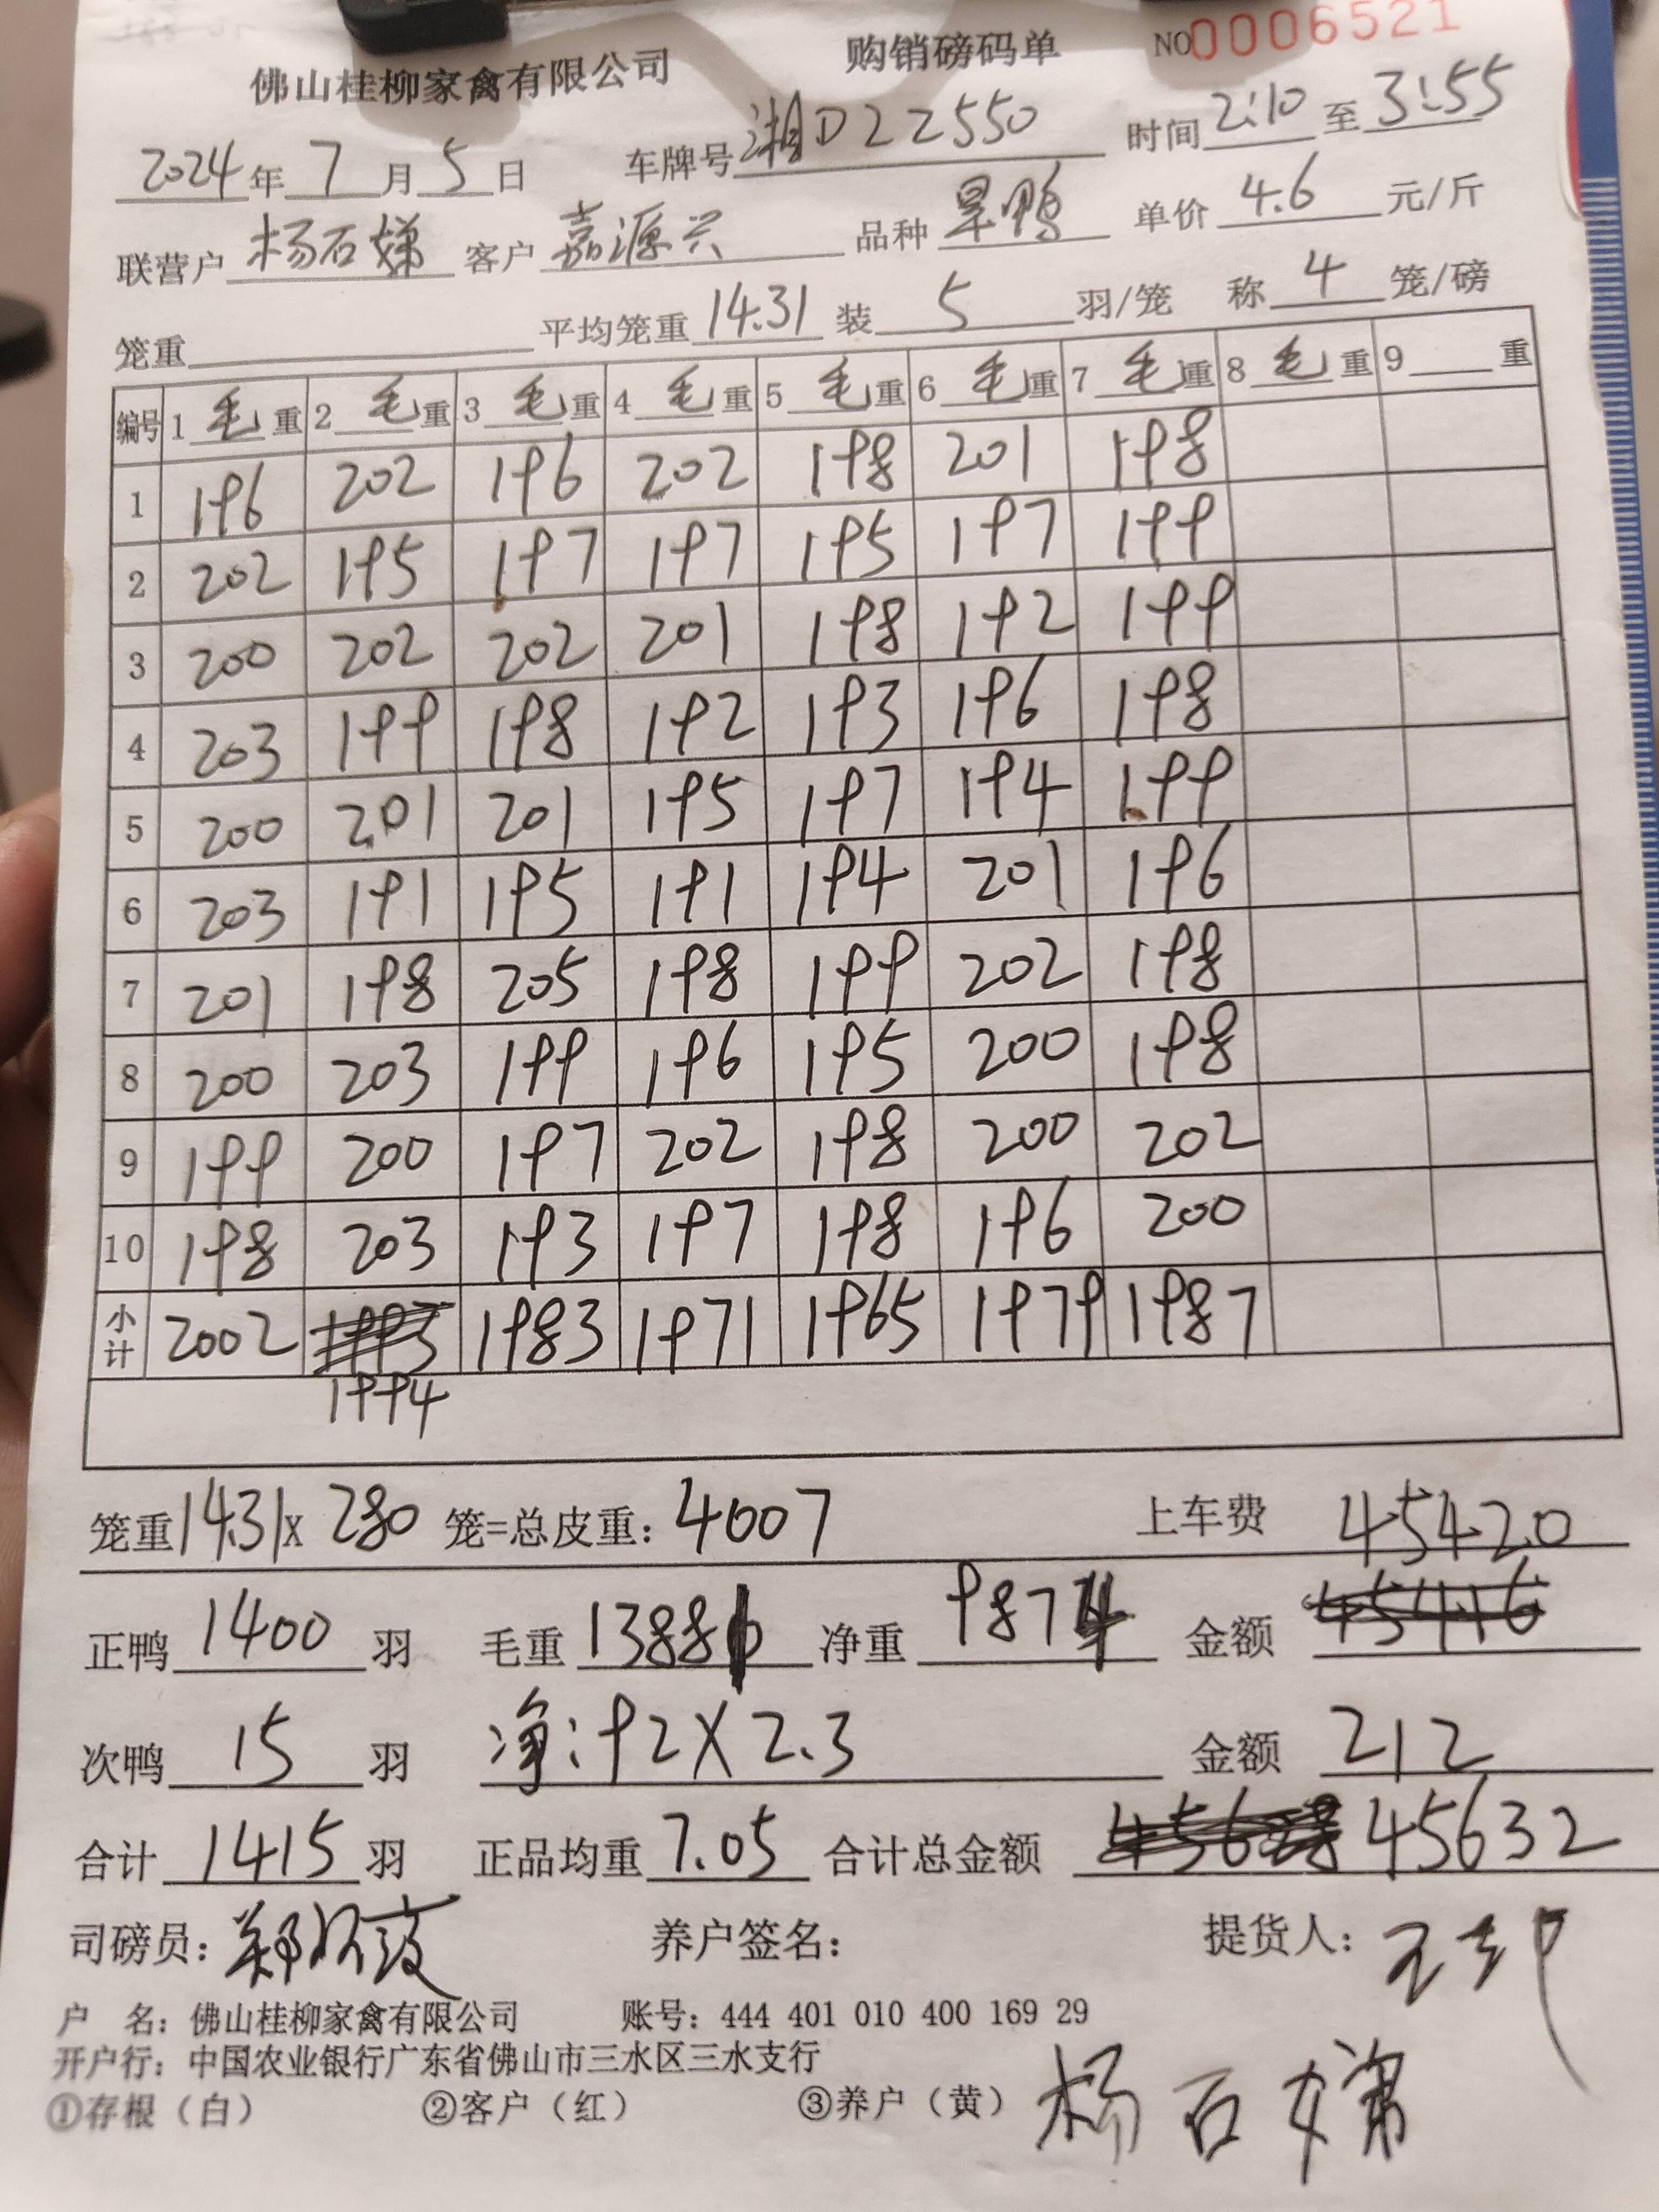 佛山桂柳家禽有限公司 购销磅码单 NO0006521
2024年7月5日 车牌号湘D22550 时间2:10至3:55
联营户杨石娣 客户嘉源兴 品种旱鸭 单价4.6元/斤
笼重 平均笼重14.31装5羽/笼 称4笼/磅
编号 1毛重 2毛重 3毛重 4毛重 5毛重 6毛重 7毛重 8毛重 9重
1 196 202 196 202 198 201 198
2 202 195 197 197 195 197 199
3 200 202 202 201 198 192 199
4 203 199 198 192 193 196 198
5 200 201 201 195 197 194 199
6 203 191 195 191 194 201 196
7 201 198 205 198 199 202 198
8 200 203 199 196 195 200 198
9 199 200 197 202 198 200 202
10 198 203 193 197 198 196 200
小计 2002 1993 1983 1971 1965 1979 1987
1994
笼重1431x280笼=总皮重:4007 上车费 45420
正鸭1400羽 毛重13881 净重9874 金额45416
次鸭15羽 净:92X2.3 金额212
合计1415羽 正品均重7.05 合计总金额 45632
司磅员: 养户签名: 提货人:
户 名:佛山桂柳家禽有限公司 账号:444 401 010 400 169 29
开户行:中国农业银行广东省佛山市三水区三水支行
①存根(白) ②客户(红) ③养户(黄) 杨石娣